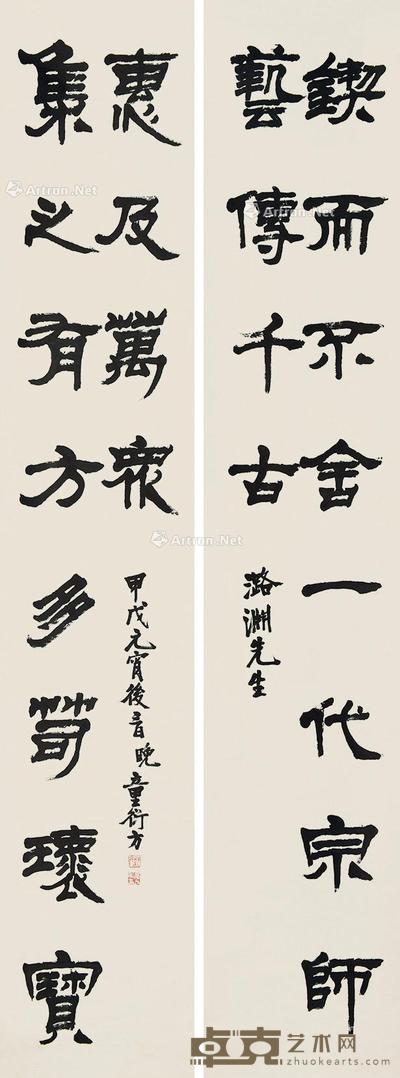 鍥而不舍一代宗師
藝傳千古
潞淵先生
集之有方多瓌寶
惠及萬衆
甲戌元宵後日晚童衍方
Artron.Net
Artron.Net
Artron.Net
Artron.Net
卓克艺术网
zhuokearts.com